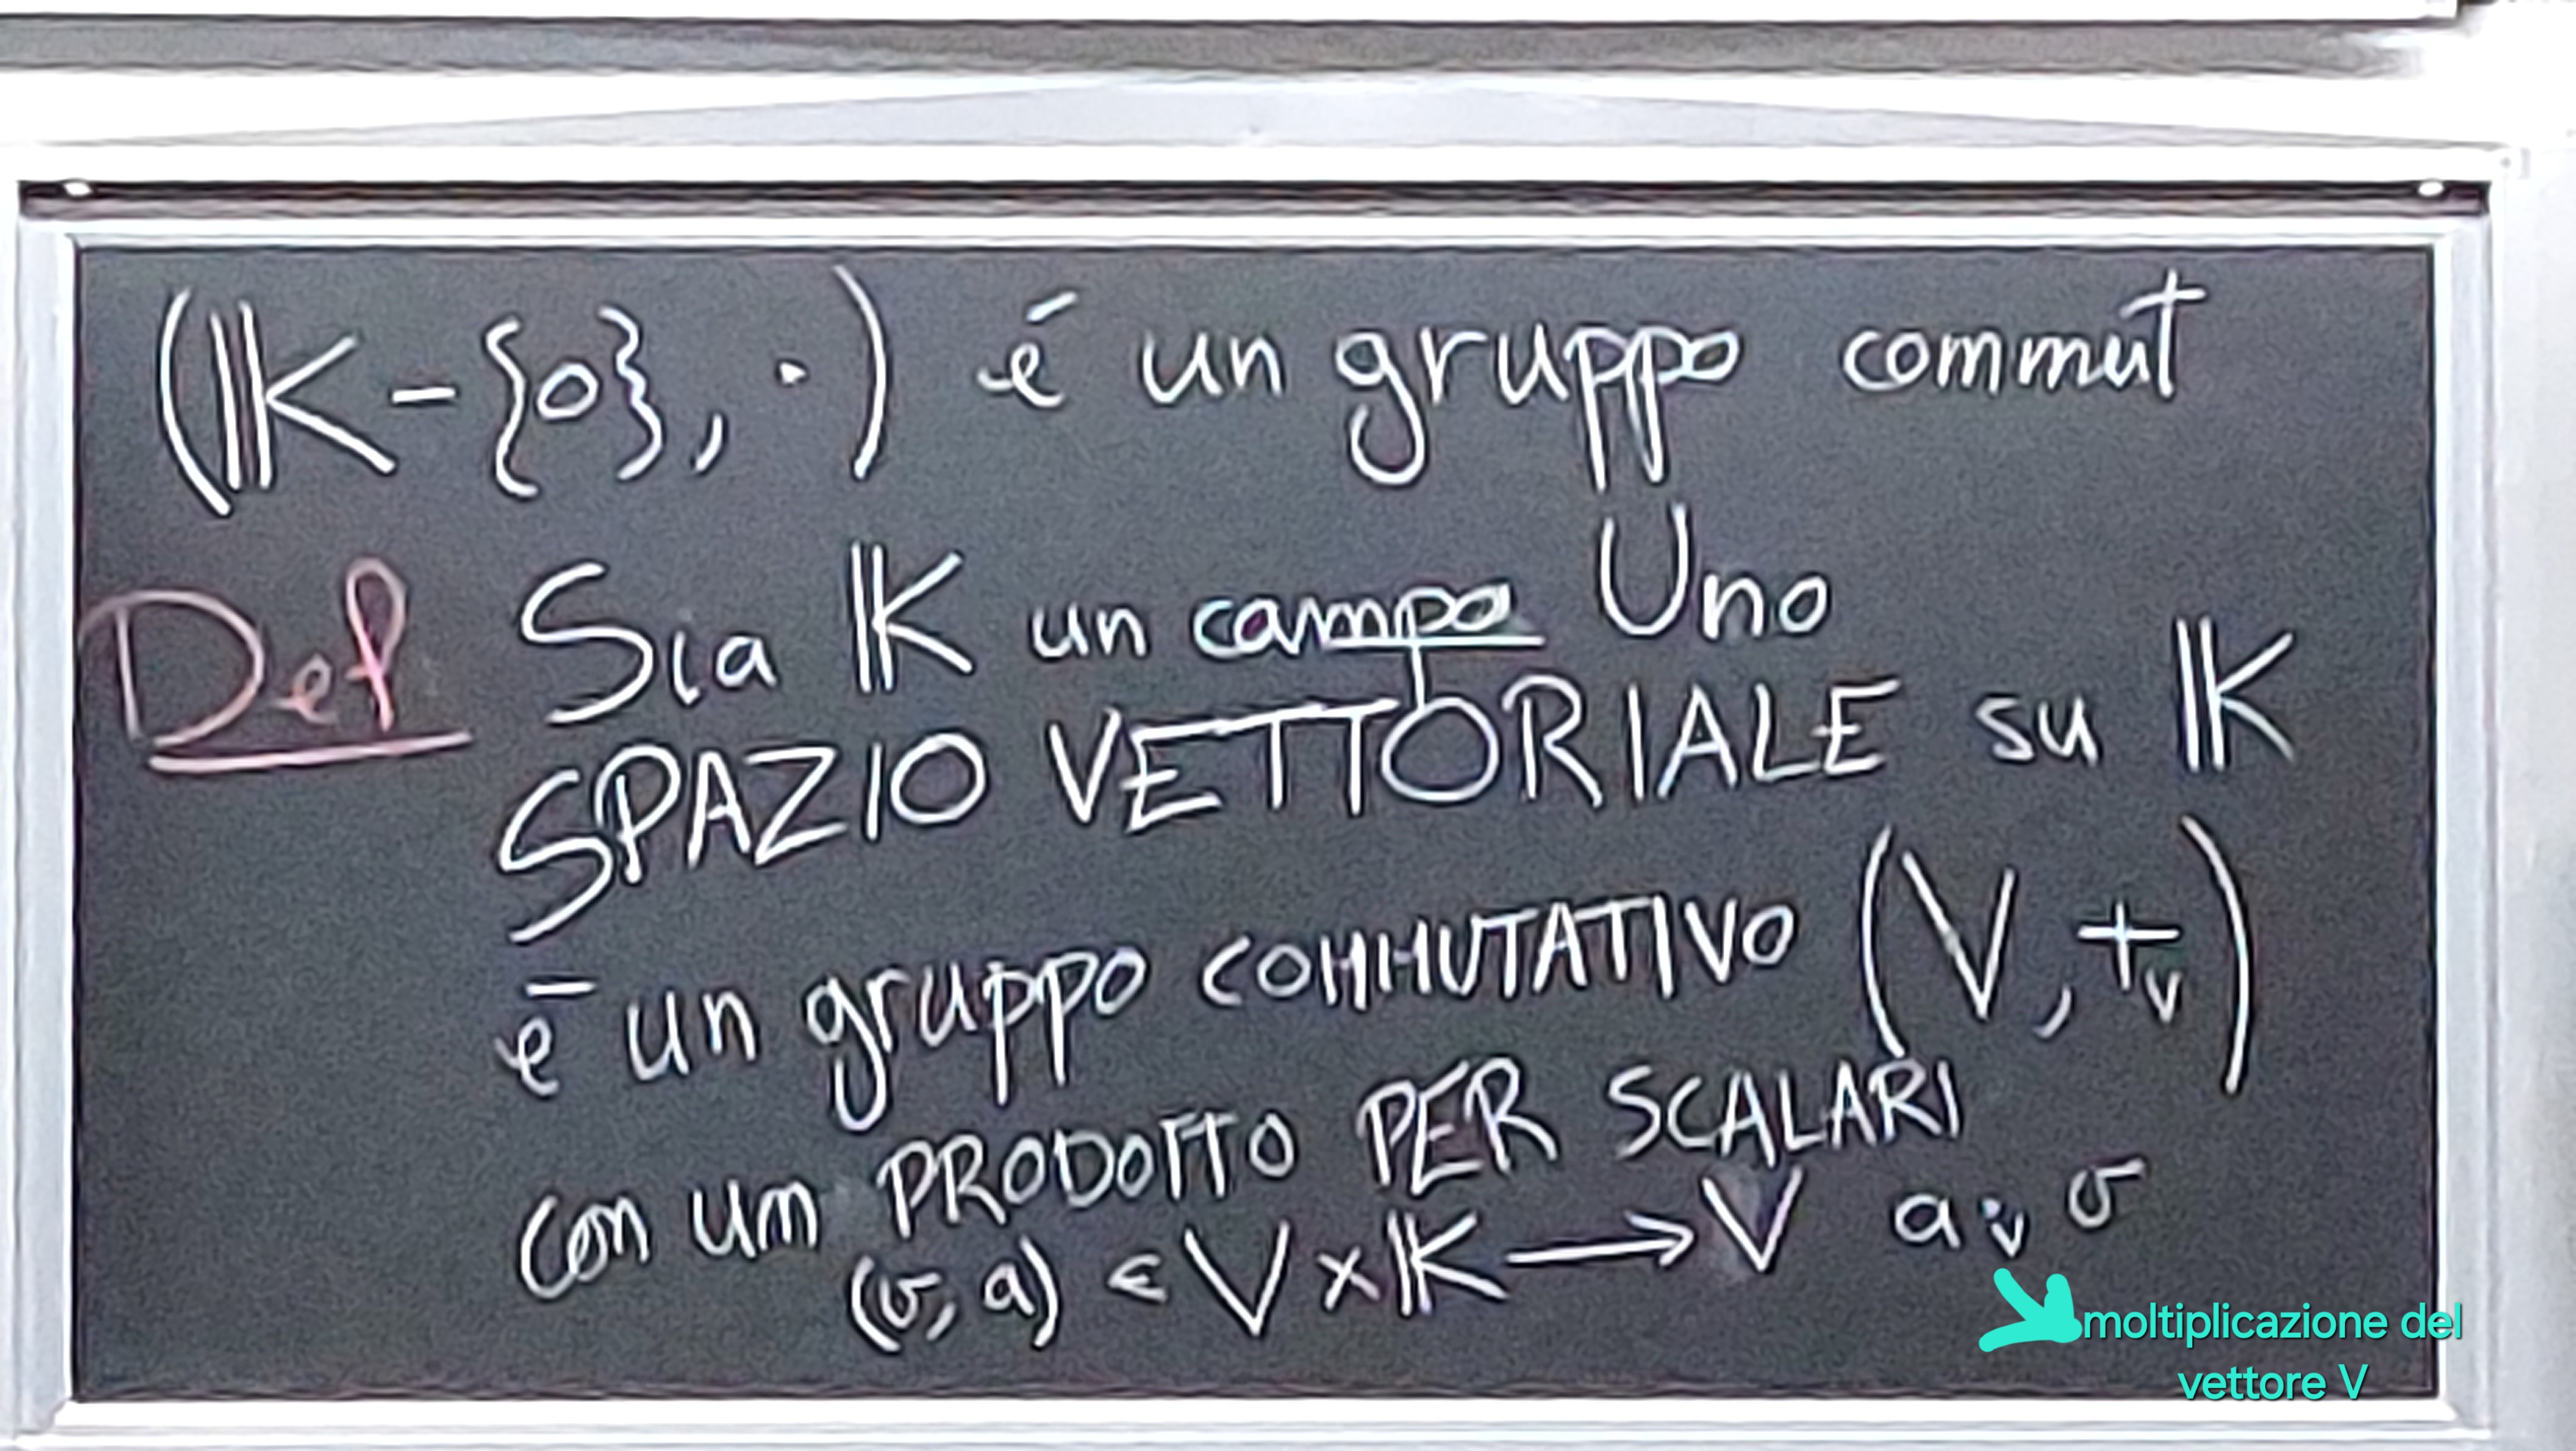 (𝕂-{0}, ·) é un gruppo commut
Def Sia 𝕂 un campo Uno
SPAZIO VETTORIALE su 𝕂
è un gruppo COMMUTATIVO (V, +ᵥ)
con um PRODOTTO PER SCALARI
(v, a) ∈ V × 𝕂 → V a ·ᵥ v
moltiplicazione del
vettore V